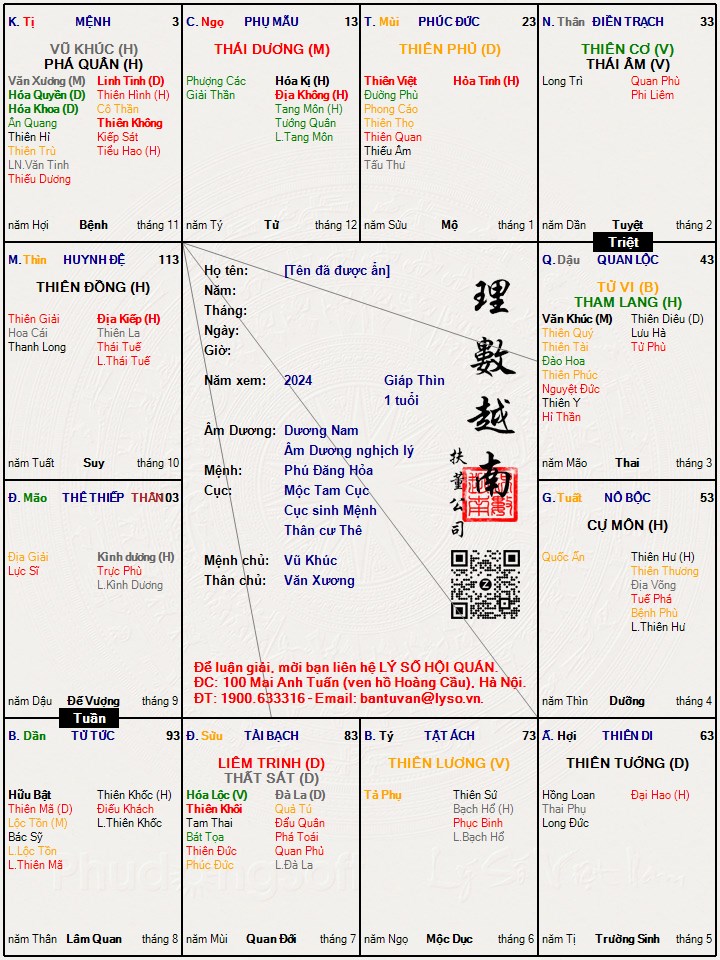 K. Tị MỆNH 3
VŨ KHÚC (H)
PHÁ QUÂN (H)
Văn Xương (M) Linh Tinh (D)
Hóa Quyền (D) Thiên Hình (H)
Hóa Khoa (D) Cô Thần
Ân Quang Thiên Không
Thiên Hỉ Kiếp Sát
Thiên Trù Tiểu Hao (H)
LN.Văn Tinh
Thiếu Dương
năm Hợi Bệnh tháng 11
C. Ngọ PHỤ MẪU 13
THÁI DƯƠNG (M)
Phượng Các Hóa Kị (H)
Giải Thần Địa Không (H)
Tang Môn (H)
Tướng Quân
L.Tang Môn
năm Tý Tử tháng 12
T. Mùi PHÚC ĐỨC 23
THIÊN PHỦ (D)
Thiên Việt Hỏa Tinh (H)
Đường Phù
Phong Cáo
Thiên Thọ
Thiên Quan
Thiếu Âm
Tấu Thư
năm Sửu Mộ tháng 1
N. Thân ĐIỀN TRẠCH 33
THIÊN CƠ (V)
THÁI ÂM (V)
Long Trì Quan Phù
Phi Liêm
năm Dần Tuyệt tháng 2
Triệt
M. Thìn HUYNH ĐỆ 113
THIÊN ĐỒNG (H)
Thiên Giải Địa Kiếp (H)
Hoa Cái Thiên La
Thanh Long Thái Tuế
L.Thái Tuế
năm Tuất Suy tháng 10
Họ tên: [Tên đã được ẩn]
Năm:
Tháng:
Ngày:
Giờ:
Năm xem: 2024 Giáp Thìn
1 tuổi
Âm Dương: Dương Nam
Âm Dương nghịch lý
Mệnh: Phú Đăng Hỏa
Cục: Mộc Tam Cục
Cục sinh Mệnh
Thân cư Thê
Mệnh chủ: Vũ Khúc
Thân chủ: Văn Xương
理數越南
扶董公司
Z
Để luận giải, mời bạn liên hệ LÝ SỐ HỘI QUÁN.
ĐC: 100 Mai Anh Tuấn (ven hồ Hoàng Cầu), Hà Nội.
ĐT: 1900.633316 - Email: bantuvan@lyso.vn.
Q. Dậu QUAN LỘC 43
TỬ VI (B)
THAM LANG (H)
Văn Khúc (M) Thiên Diêu (D)
Thiên Quý Lưu Hà
Thiên Tài Tử Phù
Đào Hoa
Thiên Phúc
Nguyệt Đức
Thiên Y
Hỉ Thần
năm Mão Thai tháng 3
Đ. Mão THÊ THIẾP THÂN 103
Địa Giải Kình dương (H)
Lực Sĩ Trực Phù
L.Kình Dương
năm Dậu Đế Vượng tháng 9
Tuần
G. Tuất NÔ BỘC 53
CỰ MÔN (H)
Quốc Ấn Thiên Hư (H)
Thiên Thương
Địa Võng
Tuế Phá
Bệnh Phù
L.Thiên Hư
năm Thìn Dưỡng tháng 4
B. Dần TỬ TỨC 93
Hữu Bật Thiên Khốc (H)
Thiên Mã (D) Điếu Khách
Lộc Tồn (M) L.Thiên Khốc
Bác Sỹ
L.Lộc Tồn
L.Thiên Mã
năm Thân Lâm Quan tháng 8
Đ. Sửu TÀI BẠCH 83
LIÊM TRINH (D)
THẤT SÁT (D)
Hóa Lộc (V) Đà La (D)
Thiên Khôi Quả Tú
Tam Thai Đẩu Quân
Bát Tọa Phá Toái
Thiên Đức Quan Phủ
Phúc Đức L.Đà La
năm Mùi Quan Đới tháng 7
B. Tý TẬT ÁCH 73
THIÊN LƯƠNG (V)
Tả Phụ Thiên Sứ
Bạch Hổ (H)
Phục Binh
L.Bạch Hổ
năm Ngọ Mộc Dục tháng 6
Ấ. Hợi THIÊN DI 63
THIÊN TƯỚNG (D)
Hồng Loan Đại Hao (H)
Thai Phụ
Long Đức
năm Tị Trường Sinh tháng 5